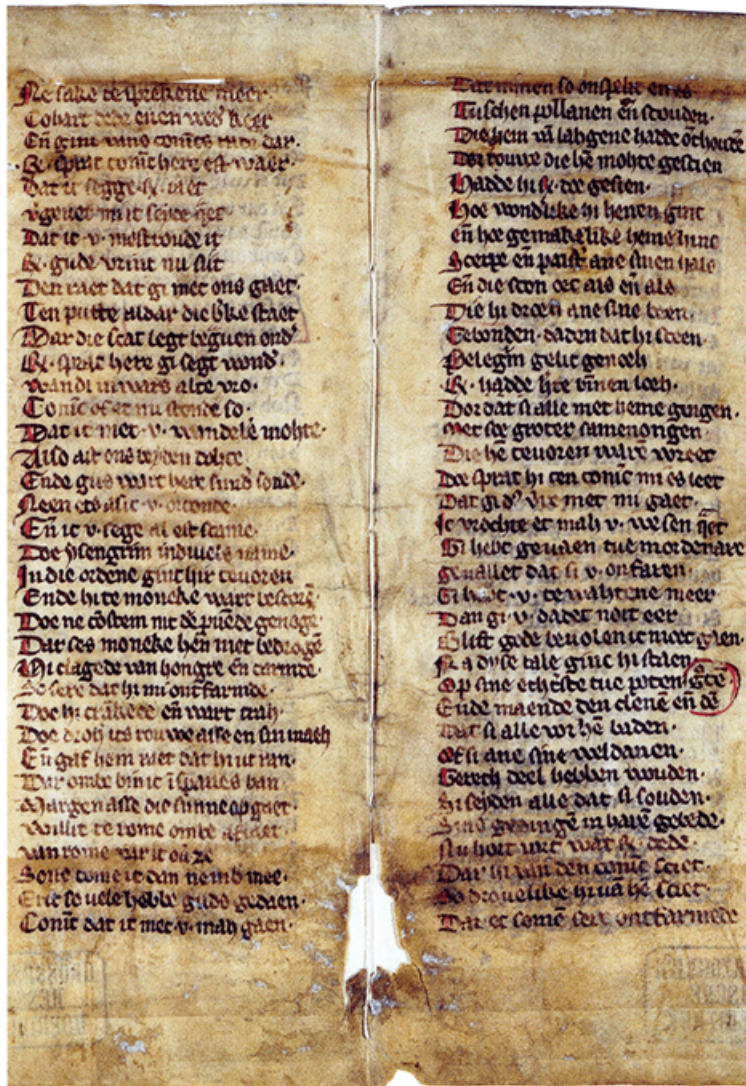 Ne sake te sprekene meer
Cobart dede enen wed' keer
Eñ ginc vans conincs rade dar·
·R· sprac conīc here est waer
Dat ic segge
Dat ic v· mestroude it
R· gude vrint nu sijt
Den raet dat gi met ons gaet·
Ten putte aldar die b'ke staet
Dar die scat legt beguen ond'
R· sprac here gi segt wond'
Conīc of et nu stonde so·
Dat ic met v· wandelē mohte·
Also alt ons beyden dohte
Ende gijs wart here sund' sonde·
Neen ets alsic v· orconde·
Eñ ic v· sege al eist scame·
Doe ysengrim ind'uuels name·
In die ordene ginc hir teuoren
Ende hi te moneke wart bescorē
Doe ne cōstem nit de p'uēde genoge
Dar ses moneke hen met bedrogē
Hi clagede van hongre eñ carmde·
So sere dat hi mi ontfarmde·
Doe hi crankede eñ wart trah·
Doe droh ics rouwe alse en sin maeh
Eñ gaf hem raet dat hi ut ran·
Dar ombe bin ic ī spaues ban
Margen alse die sunne op gaet·
Willic te rome ombe aflaet·
van rome var ic ou' ze
Sone come ic dan nemb mee·
Eer ic so vele hebbe gude gedaen·
Conīc dat ic met v· mah gaen·
Dat minen so onspelt en es
Tuschen pollanen eñ scouden·
Die hem vā lahgene hadde ōthoudē
Dor rouwe die hē mohte gescien
Hadde hi R· doe gesien·
Hoe wond'like hi henen ginc
eñ hoe gemakelike heme hinc
Scerpe eñ palst' ane sinen hals
Eñ die scon oec als eñ als
Die hi droeh ane sine been·
Gebonden· daden dat hi sceen
Pelegrim gelic genoeh
R· hadde h'te bīnen loeh·
Dor dat si alle met heme gingen·
Met soe groter samenongen·
Die hē teuoren warē wreet
Doe sprac hi ten conīc mi es leet
Dat gi d'se v're met mi gaet·
Ic vrochte et mah v· wesen q̄et
Gi hebt geuaen tue mordenare
geuallet dat si v· onfaren·
Gi hebt· v· te wahtene meer
Dan gi v· dadet noit eer
Blift gode beuolen ic moet gaen·
Na dyse tale ginc hi staen
Op sine ethtste tue poten g̊tē
Ende maende den clenē eñ dē
Dat si alle vor hē baden·
Of si ane sine weldaden·
Gereth deel hebben wouden·
Si seyden alle dat si souden·
Sijns gedingē in harē gebede·
Nu hort vort wat R· dede·
Dar hi van den conīc sciet·
So drouelike hi uā hē sciet·
Dat et somē sere ontfarmede